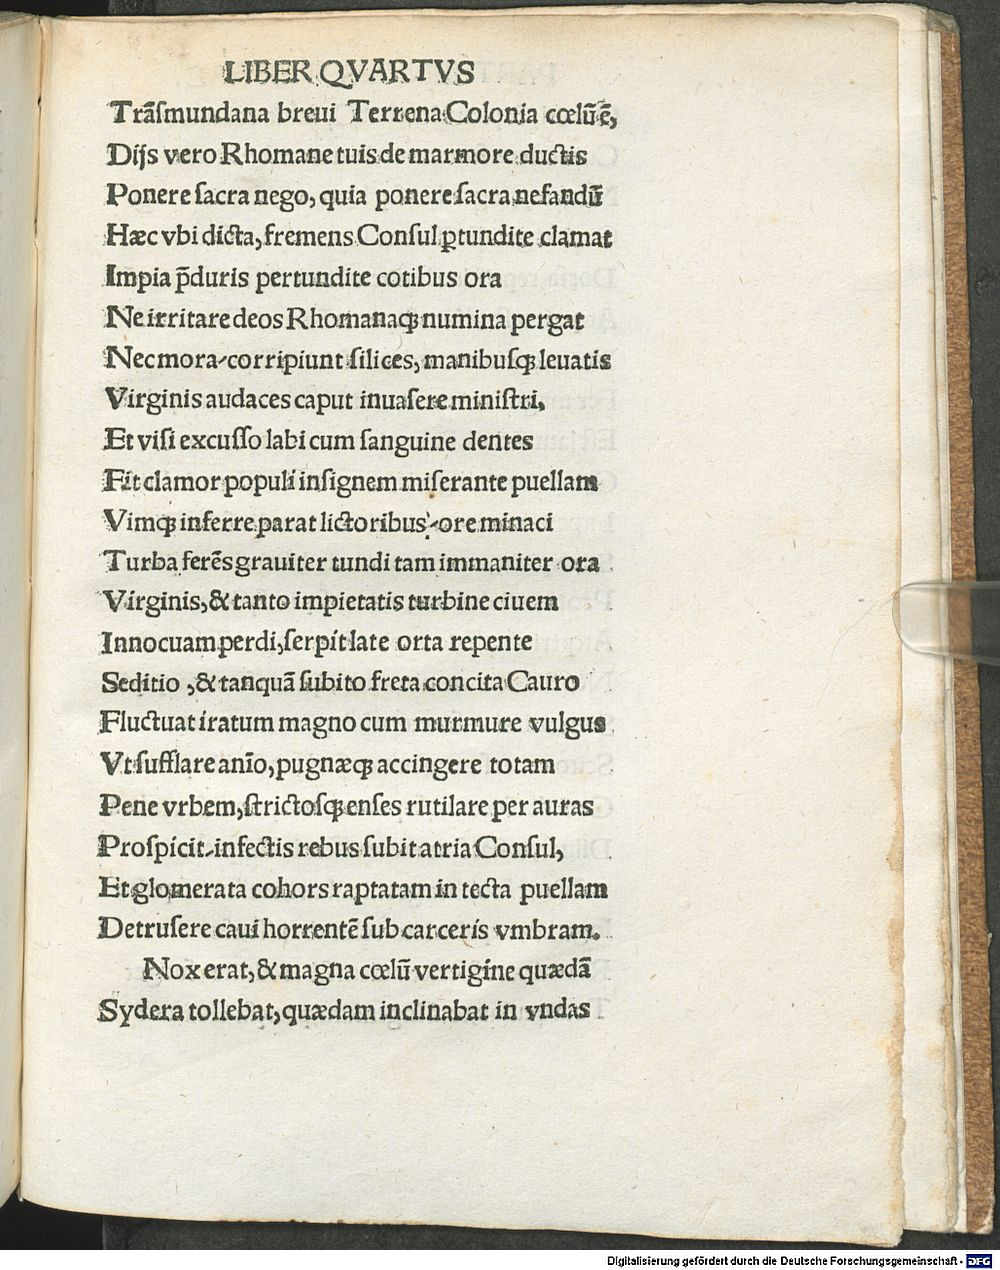 LIBER QVARTVS
Trãſmundana breui Terrena Colonia cœlũ ẽ,
Dijs vero Rhomane tuis de marmore ductis
Ponere ſacra nego, quia ponere ſacra nefandũ
Hæc vbi dicta, fremens Conſul ꝑtundite clamat
Impia p̃duris pertundite cotibus ora
Ne irritare deos Rhomanaqꝫ numina pergat
Nec mora-corripiunt ſilices, manibuſqꝫ leuatis
Virginis audaces caput inuaſere miniſtri,
Et viſi excuſſo labi cum ſanguine dentes
Fit clamor populi inſignem miſerante puellam
Vimqꝫ inferre parat lictoribus-ore minaci
Turba ferẽs grauiter tundi tam immaniter ora
Virginis, & tanto impietatis turbine ciuem
Innocuam perdi, ſerpit late orta repente
Seditio, & tanquã ſubito freta concita Cauro
Fluctuat iratum magno cum murmure vulgus
Vt ſufflare anĩo, pugnæqꝫ accingere totam
Pene vrbem, ſtrictoſqꝫ enſes rutilare per auras
Proſpicit-infectis rebus ſubit atria Conſul,
Et glomerata cohors raptatam in tecta puellam
Detruſere caui horrentẽ ſub carceris vmbram.
Nox erat, & magna cœlũ vertigine quædã
Sydera tollebat, quædam inclinabat in vndas
Digitalisierung gefördert durch die Deutsche Forschungsgemeinschaft - DFG